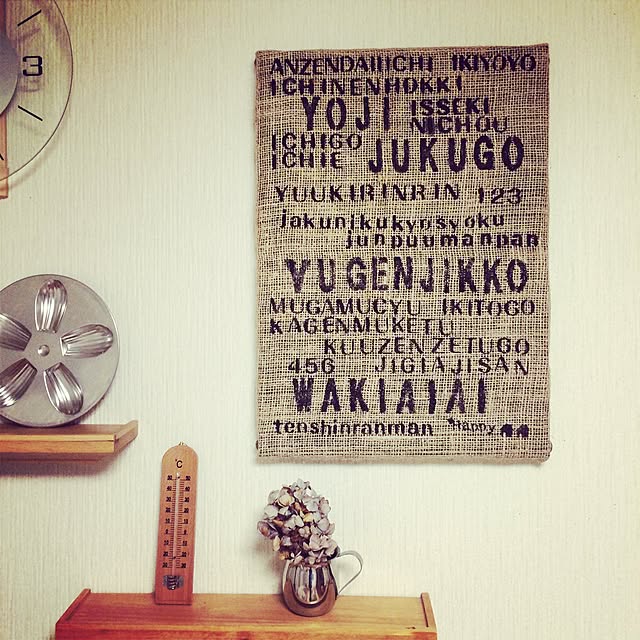 3
ANZENDAIIICHI IKIYOYO
ICHINENHOKKI
YOJI ISSEKI
NICHOU
ICHIGO
ICHIE JUKUGO
YUUKIRINRIN 123
jakunikukyousyoku
junpuumanpan
YUGENJIKKO
MUGAMUCYU IKITOGO
KAGENMUKETU
KUUZENZETUGO
456 JIGIAJISAN
WAKIAIAI
tenshinranman Happy
°C